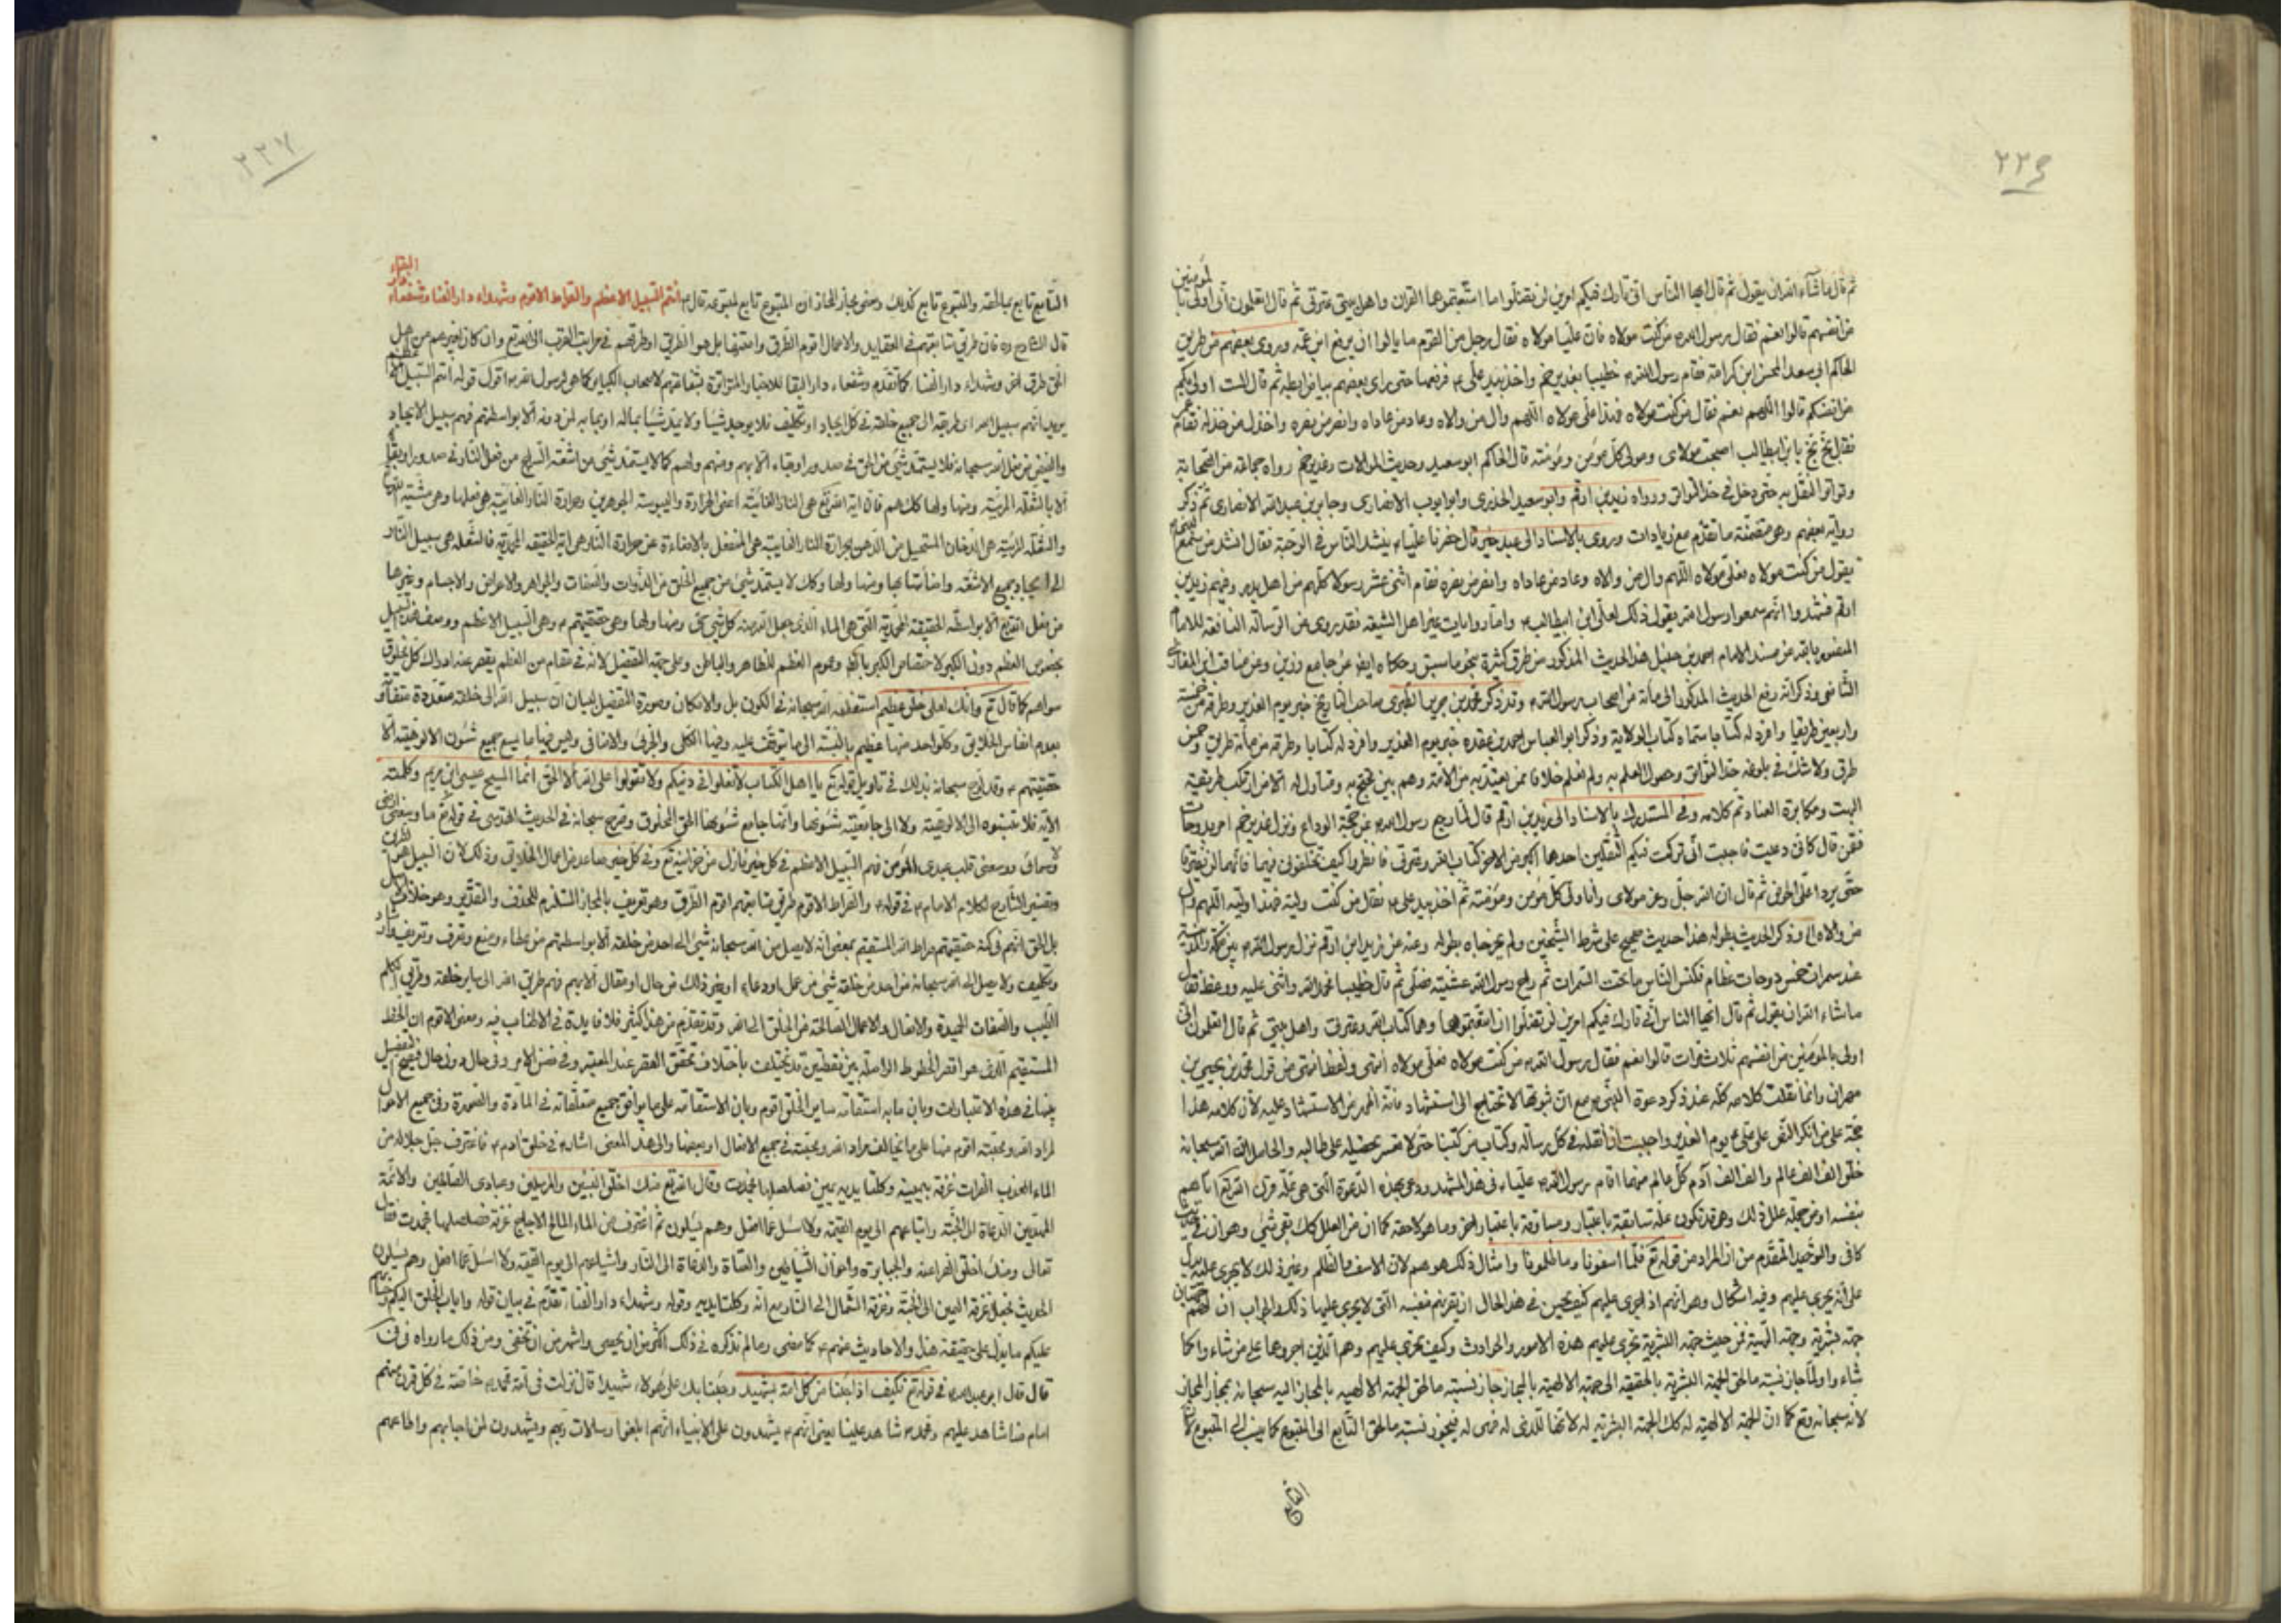 ٢٢٦
ثم قال ما شاء الله ان يقول ثم قال ايها الناس انى تارك فيكم امرين لن تضلوا ما اتبعتموهما القران واهل بيتى عترتى ثم قال اتعلمون انى اولى بالمؤمنين
من انفسهم قالوا نعم فقال رسول الله من كنت مولاه فان عليا مولاه فقال رجل من القوم ما يالوا ان يرفع ابن عمه وروى بعضهم من طريق
الحاكم ابى سعد المحسن ابن كرامة فقام رسول الله خطيبا بغدير خم واخذ بيد على فرفعها حتى راى بعضهم بياض ابطه ثم قال الست اولى بكم
من انفسكم قالوا اللهم نعم فقال من كنت مولاه فهذا على مولاه اللهم وال من والاه وعاد من عاداه وانصر من نصره واخذل من خذله فقام عمر
فقال بخ بخ يا بن ابيطالب اصبحت مولاى ومولى كل مؤمن ومؤمنة قال الحاكم ابو سعيد وحديث الموالات وغدير خم رواه جماعة من الصحابة
وتواتر النقل به حتى دخل فى حد التواتر ورواه زيد بن ارقم وابو سعيد الخدرى وابو ايوب الانصارى وجابر بن عبد الله الانصارى ثم ذكر
رواية بعضهم وهى متضمنة ما تقدم مع زيادات وروى بالاسناد الى عبد خير قال حضرنا عليا ينشد الناس فى الرحبة فقال انشد من سمع النبى
يقول من كنت مولاه فعلى مولاه اللهم وال من والاه وعاد من عاداه وانصر من نصره فقام اثنى عشر رسولا كلهم من اهل بدر وفيهم زيد بن
ارقم فشهدوا انهم سمعوا رسول الله يقول ذلك لعلى ابن ابيطالب واما روايات غير اهل الشيعة فقد روى من الرسالة النافعة للامام
المنصور بالله من مسند الامام احمد بن حنبل هذا الحديث المذكور من طرق كثيرة بنحو ما سبق وحكاه ايض عن جامع رزين وعن مناقب ابن المغازلى
الشافعى وذكر انه رفع الحديث المذكور الى مائة من اصحاب رسول الله وقد ذكر محمد بن جرير الطبرى صاحب التاريخ خبر يوم الغدير وطرقه من خمسة
واربعين طريقا وافرد له كتابا سماه كتاب الولاية وذكر ابو العباس احمد بن عقده خبر يوم الغدير وافرد له كتابا وطرقه من مائة طريق وخمس
طرق ولا شك فى بلوغه حد التواتر وحصول العلم به ولم نعلم خلافا ممن يعتد به من الامة وهم بين محتج به ومتاول له الا من ارتكب طريقة
البهت ومكابرة العناد تم كلامه وفى المستدرك بالاسناد الى زيد بن ارقم قال لما رجع رسول الله عن حجة الوداع ونزل غدير خم امر بدوحات
فقمن قال كانى دعيت فاجبت انى تركت فيكم الثقلين احدهما اكبر من الاخر كتاب الله وعترتى فانظروا كيف تخلفونى فيهما فانهما لن يفترقا
حتى يردا على الحوض ثم قال ان الله جل وعز مولاى وانا ولى كل مؤمن ومؤمنة ثم اخذ بيد على فقال من كنت وليه فهذا وليه اللهم وال
من والاه الى وذكر الحديث بطوله هذا حديث صحيح على شرط الشيخين ولم يخرجاه بطوله وعنه عن زيد ابن ارقم نزل رسول الله بين مكة والمدينة
عند سمرات خمس دوحات عظام فكنس الناس ما تحت السمرات ثم راح رسول الله عشية فصلى ثم قال خطيبا فحمد الله واثنى عليه ووعظ فقال
ما شاء الله ان يقول ثم قال ايها الناس انى تارك فيكم امرين لن تضلوا ان اتبعتموهما وهما كتاب الله وعترتى واهل بيتى ثم قال اتعلمون انى
اولى بالمؤمنين من انفسهم ثلاث مرات قالوا نعم فقال رسول الله من كنت مولاه فعلى مولاه انتهى ولفظ انتهى من قول محمد بن يحيى بن
مهران وانما نقلت كلامه كله عند ذكر دعوة النبى مع ان ثبوتها لا تحتاج الى استشهاد فانه اظهر من الاستشهاد عليه لان كلامه هذا
حجة على من انكر النص على على يوم الغدير واحببت ان انقله فى كل رسالة وكتاب من كتبنا حتى لا تعسر تحصيله على طالبه والحاصل ان الله سبحانه
خلق الف الف عالم والف الف آدم كل عالم منهما اقام رسول الله عليا فى هذا المشهد ودعى بهذه الدعوة التى هى علة
بنفسه او من جملة علل ذلك وهى قد تكون علة سابقة باعتبار ومساوقة باعتبار اخر وما هو لاحقة كما ان من العلل كك بقى شئ وهو ان فى
كافى والتوحيد المتقدم من ان المراد من قوله تع فلما اسفونا وما ظلمونا وامثال ذلك هو هم لان الاسف والظلم وغير ذلك لا يجرى عليه يدل
على انه يجرى عليهم وفيه اشكال وهو انهم اذ اجرى عليهم كيف يحسن فى هذا الحال ان يقرنهم بنفسه التى لا يجرى عليها ذلك والجواب ان لهم جهتان
جهة بشرية وجهة الهية فمن حيث جهة البشرية تجرى عليهم هذه الامور والحوادث وكيف تجرى عليهم وهم الذين اجروها على من شاء واكما
شاء وا ولما جاز نسبة ما لحق الجهة البشرية بالحقيقة الى جهة الالهية بالمجاز جاز نسبة ما لحق الجهة الالهية بالمجاز اليه سبحانه بمجاز المجاز
لانه سبحانه وتع كما ان الجهة الالهية له كك الجهة البشرية له لانها للذى له فهى له فيجوز نسبة ما لحق التابع الى المتبوع كما ينسب الى المتبوع لان
التابع
٢٢٧
التابع تابع بما لحقه والمتبوع تابع كذلك ومعنى مجاز المجاز ان المتبوع تابع لمتبوعه قال انتم السبيل الاعظم والصراط الاقوم وشهداء دار الفنا وشفعاء دار البقاء
قال الشارح ره فان طريق متابعتهم فى العقايد والاعمال اقوم الطرق وامتنها بل هو الطريق او طريقهم فى مراتب القرب الى الله تع وان كان لغيرهم من اهل
الحق طرق اخر وشهداء دار الفنا كما تقدم وشفعاء دار البقا للاخبار المتواترة بشفاعتهم لاصحاب الكباير كما هى لرسول الله اقول قوله انتم السبيل الاعظم
يريد انهم سبيل الله اى طريقه الى جميع خلقه فى كل ايجاد او تكليف فلا يوجد شيئا ولا يمد شيئا بماله او بما به لمن دونه الا بواسطتهم فهم سبيل الايجاد
والفيض من فعل الله سبحانه فلا يستمد شئ من الحق فى صدور او بقاء الا بهم ومنهم ولهم كما لا يستمد شئ من اشعة السراج من فعل النار فى صدور او بقاء
الا بالشعلة المرئية ومنها ولها كك هم فان اية الله تع هى النار الغائبة اعنى الحرارة واليبوسة الجوهرين وحرارة النار الغايبة هى فعلها وهى مشية الله
والشعلة المرئية هى الدخان المستحيل من الدهن بحرارة النار الغايبة هى المنفعل بالاضاءة عن حرارة النار هى اية الحقيقة المحمدية فالشعلة هى سبيل النار
الى ايجاد جميع الاشعة واضاءتها بها ومنها ولها وكك لا يستمد شئ من جميع الخلق من الذوات والصفات والجواهر والاعراض والاجسام وغيرها
من فعل الله تع الا بواسطة الحقيقة المحمدية التى هى الماء الذى جعل الله منه كل شئ حى ومنها ولها وهى حقيقتهم وهى السبيل الاعظم ووصف هذه السبيل
بخصوص العظم دون الكبر لاختصاص الكبر وعموم العظم للظاهر والباطن وعلى جهة التفضيل لانه فى مقام من العظم يقصر عنه ادراك كل مخلوق
سواهم كما قال تع وانك لعلى خلق عظيم استعظمه الله سبحانه فى الكون بل والامكان وصورة التفضيل لبيان ان سبيل الله الى خلقه متعددة متفاوتة
بعدد انفاس الخلايق وكل واحد منها عظيم بالنسبة الى ما توقف عليه وفيها الكلى والجزئى والاضافى وليس فيها ما يسع جميع شئون الالوهية الا
حقيقتهم وقد سبحانه بذلك فى تاويل قوله تع يا اهل الكتاب لا تغلوا فى دينكم ولا تقولوا على الله الا الحق انما المسيح عيسى ابن مريم وكلمته
الاية فلا تنسبوه الى الالوهية ولا الى جامعية شئونها وانما جامع شئونها الحق المخلوق وصرح سبحانه فى الحديث القدسى فى قوله تع ما وسعنى ارضى
ولا سمائى ووسعنى قلب عبدى المؤمن فهم السبيل الاعظم فى كل خير نازل من خزائنه تع وفى كل خير صاعد من اعمال الخلايق وذلك لان السبيل هو الطريق
وتفسير الشارح لكلام الامام فى قوله والصراط الاقوم طريق متابعتهم اقوم الطرق وهو تعريف بالمجاز المستلزم للحذف والتقدير وهو خلاف الاصل
بل الحق انهم فى كنه حقيقتهم صراط الله المستقيم بمعنى انه لا يصل من الله سبحانه شئ الى احد من خلقه الا بواسطتهم من عطاء ومنع وتعرف وتعريف
وتكليف ولا يصل الى الله سبحانه من احد من خلقه شئ من عمل او دعاء او نحو ذلك من حال او مقال الا بهم فهم طريق الله الى ساير خلقه وطريق الكلم
الطيب والصفات الحميدة والافعال والاعمال الصالحة من الخلق الى الله وقد تقدم من هذا كثير فلا فايدة فى الاطناب فيه ومعنى الاقوم ان الخط
المستقيم الذى هو اقصر الخطوط الواصلة بين نقطتين قد يختلف باختلاف تحقق القصر عند المعتبر وفى نفس الامر وفى حال دون حال فيصح التفضيل
بينها فى هذه الاعتبارات وبان ما به استقامة ساير الخلق اقوم وبان الاستقامة على ما يوافق جميع متعلقاته فى المادة والصورة وفى جميع الاحوال
لمراد الله ومحبته اقوم منها على ما يخالف مراد الله ومحبته فى جميع الافعال او بعضها والى هذا المعنى اشار فى خلق ادم فاغترف جل جلاله من
الماء العذب الفرات غرفة بيمينه وكلتا يديه يمين فصلصلها فجمدت وقال الله تع منك اخلق النبيين والمرسلين وعبادى الصالحين والائمة
المهتدين الدعاة الى الجنة واتباعهم الى يوم القيمة ولا اسئل عما افعل وهم يسئلون ثم اغترف من الماء المالح الاجاج غرفة فصلصلها فجمدت فقال
تعالى ومنك اخلق الفراعنة والجبابرة واخوان الشياطين والعتاة والدعاة الى النار واشياعهم الى يوم القيمة ولا اسئل عما افعل وهم يسئلون
الحديث فجعل غرفة اليمين الى الجنة وغرفة الشمال الى النار مع انه وكلتا يديه وقوله وشهداء دار الفنا تقدم فى بيان قوله واياب الخلق اليكم وحسابهم
عليكم ما يدل على حقيقة هذا والاحاديث عنهم كما مضى ومالم نذكره فى ذلك اكثر من ان يحصى واشهر من ان تخفى ومن ذلك ما رواه فى فى
قال قال ابو عبد الله فى قوله تع فكيف اذا جئنا من كل امة بشهيد وجئنا بك على هؤلاء شهيدا قال نزلت فى امة محمد خاصة فى كل قرن منهم
امام منا شاهد عليهم ومحمد شاهد علينا يعنى انهم يشهدون على الانبياء انهم ابلغوا رسالات ربهم ويشهدون لمن اجابهم واطاعهم